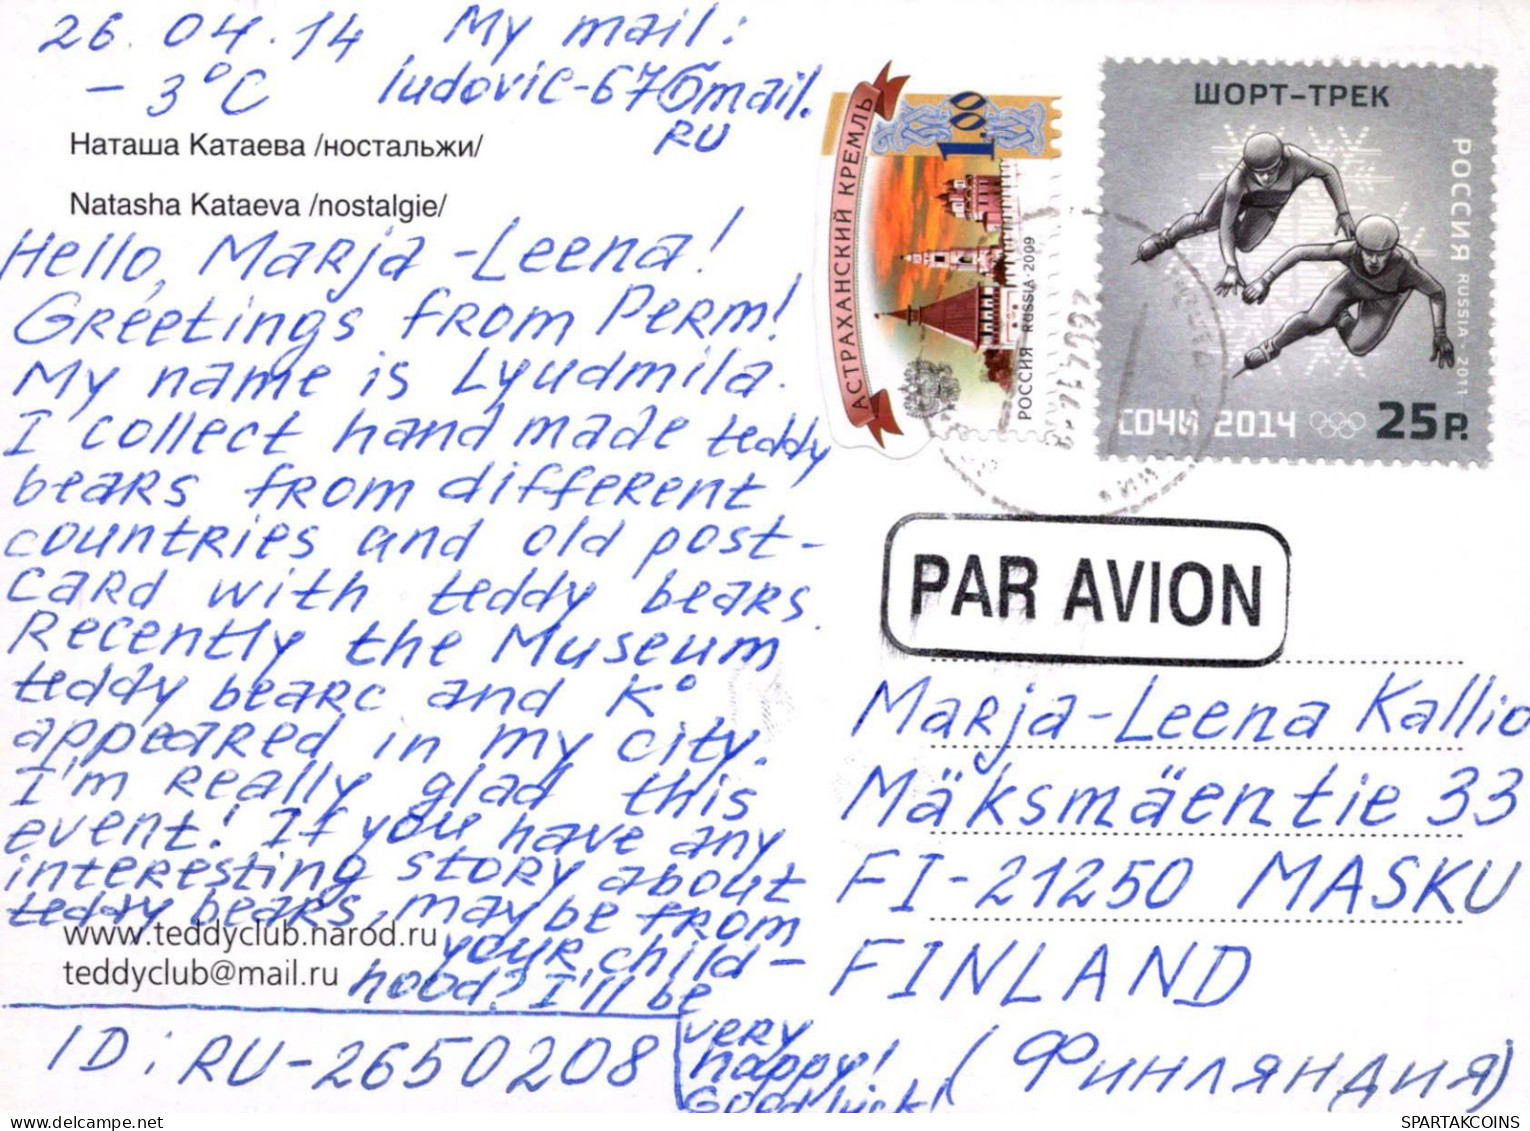 26.04.14 My mail:
-3°C ludovic-67@mail.
RU
Наташа Катаева /ностальжи/
Natasha Kataeva /nostalgie/
Hello, Marja-Leena!
Greetings from Perm!
My name is Lyudmila.
I collect hand made teddy
bears from different
countries and old post-
card with teddy bears.
Recently the Museum
teddy bearc and K°
appeared in my city.
I'm really glad this
event! If you have any
interesting story about
teddy bears, maybe from
your child-
hood? I'll be
very
happy!
Good luck!
www.teddyclub.narod.ru
teddyclub@mail.ru
ID: RU-2650208
АСТРАХАНСКИЙ КРЕМЛЬ
1.00
РОССИЯ RUSSIA·2009
ШОРТ-ТРЕК
РОССИЯ RUSSIA·2011
СОЧИ 2014
25 Р.
PAR AVION
Marja-Leena Kallio
Mäksmäentie 33
FI-21250 MASKU
FINLAND
(Финляндия)
SPARTAKCOINS